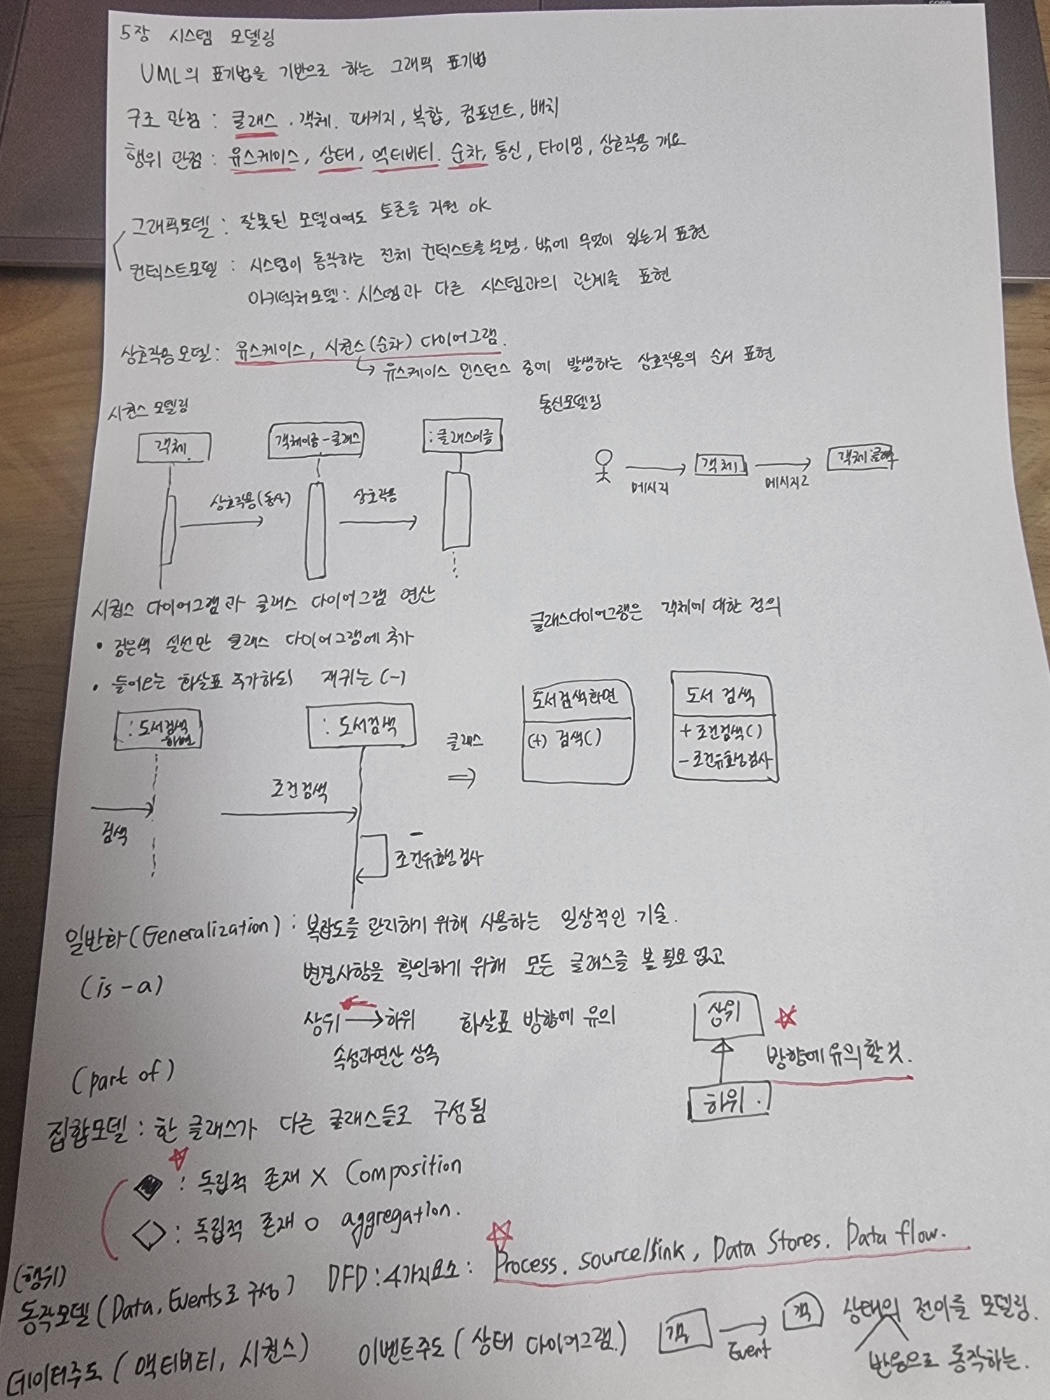 5장 시스템 모델링
UML의 표기법을 기반으로 하는 그래픽 표기법
구조 관점 : 클래스, 객체, 패키지, 복합, 컴포넌트, 배치
행위 관점 : 유스케이스, 상태, 액티비티, 순차, 통신, 타이밍, 상호작용 개요
그래픽모델 : 잘못된 모델이어도 토론을 지원 OK
컨텍스트모델 : 시스템이 동작하는 전체 컨텍스트를 설명. 밖에 무엇이 있는지 표현
아키텍처모델 : 시스템과 다른 시스템과의 관계를 표현
상호작용 모델 : 유스케이스, 시퀀스(순차) 다이어그램.
유스케이스 인스턴스 중에 발생하는 상호작용의 순서 표현
시퀀스 모델링
통신모델링
객체
객체이름-클래스
:클래스이름
상호작용(동사)
상호작용
메시지
객체1
메시지2
객체
시퀀스 다이어그램과 클래스 다이어그램 연산
• 검은색 실선만 클래스 다이어그램에 추가
• 들어오는 화살표 추가하되 재귀는 (-)
클래스다이어그램은 객체에 대한 정의
:도서검색
화면
:도서검색
클래스
⇒
검색
조건검색
-
조건유효성검사
도서검색화면
(+) 검색()
도서 검색
+ 조건검색()
- 조건유효성검사
일반화(Generalization) : 복잡도를 관리하기 위해 사용하는 일상적인 기술.
(is-a)
변경사항을 확인하기 위해 모든 클래스를 볼 필요 없고
상위 → 하위 화살표 방향에 유의
속성과연산 상속
상위
하위
방향에 유의할것.
(part of)
집합모델 : 한 클래스가 다른 클래스들로 구성됨
◆ : 독립적 존재 X Composition
◇ : 독립적 존재 O aggregation.
(행위)
동작모델 (Data, Events로 구성) DFD : 4가지요소 : Process, source/sink, Data Stores, Data flow.
데이터주도 (액티비티, 시퀀스) 이벤트주도 (상태 다이어그램)
객
Event
객
상태의 전이를 모델링.
반응으로 동작하는.